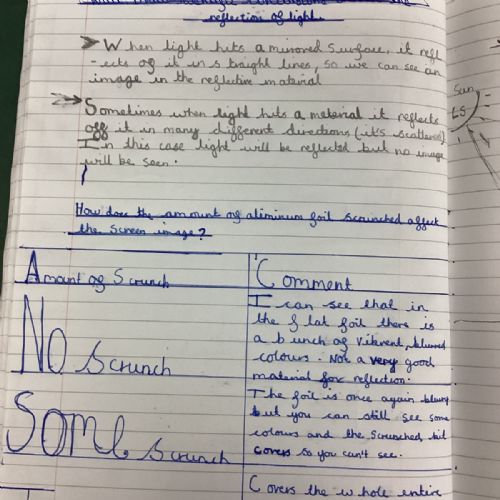 reflection of light.
When light hits a mirrored surface, it refl
-ects of it in straight lines, so we can see an
image in the reflective material
Sometimes when light hits a material it reflects
off it in many different directions (it's scattered).
In this case light will be reflected but no image
will be seen.
How does the amount of aliminum foil scrunched affect
the screen image?
Amount of Scrunch
Comment
No Scrunch
I can see that in
the flat foil there is
a bunch of vibrent, blurred
colours. Not a very good
material for reflection.
Some Scrunch
The foil is once again blurry
but you can still see some
colours and the scrunched bit
covers so you can't see.
Covers the whole entire
Sun